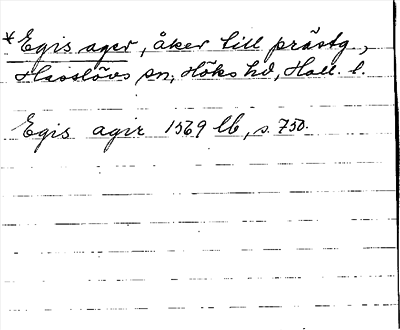 *Egis ager, åker till prästg,
Hasslövs sn, Höks hd, Hall. l.
Egis agir 1569 lb, s. 750.